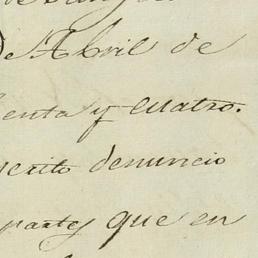 de Abril de
enta y cuatro.
scrito denuncio
partes que en